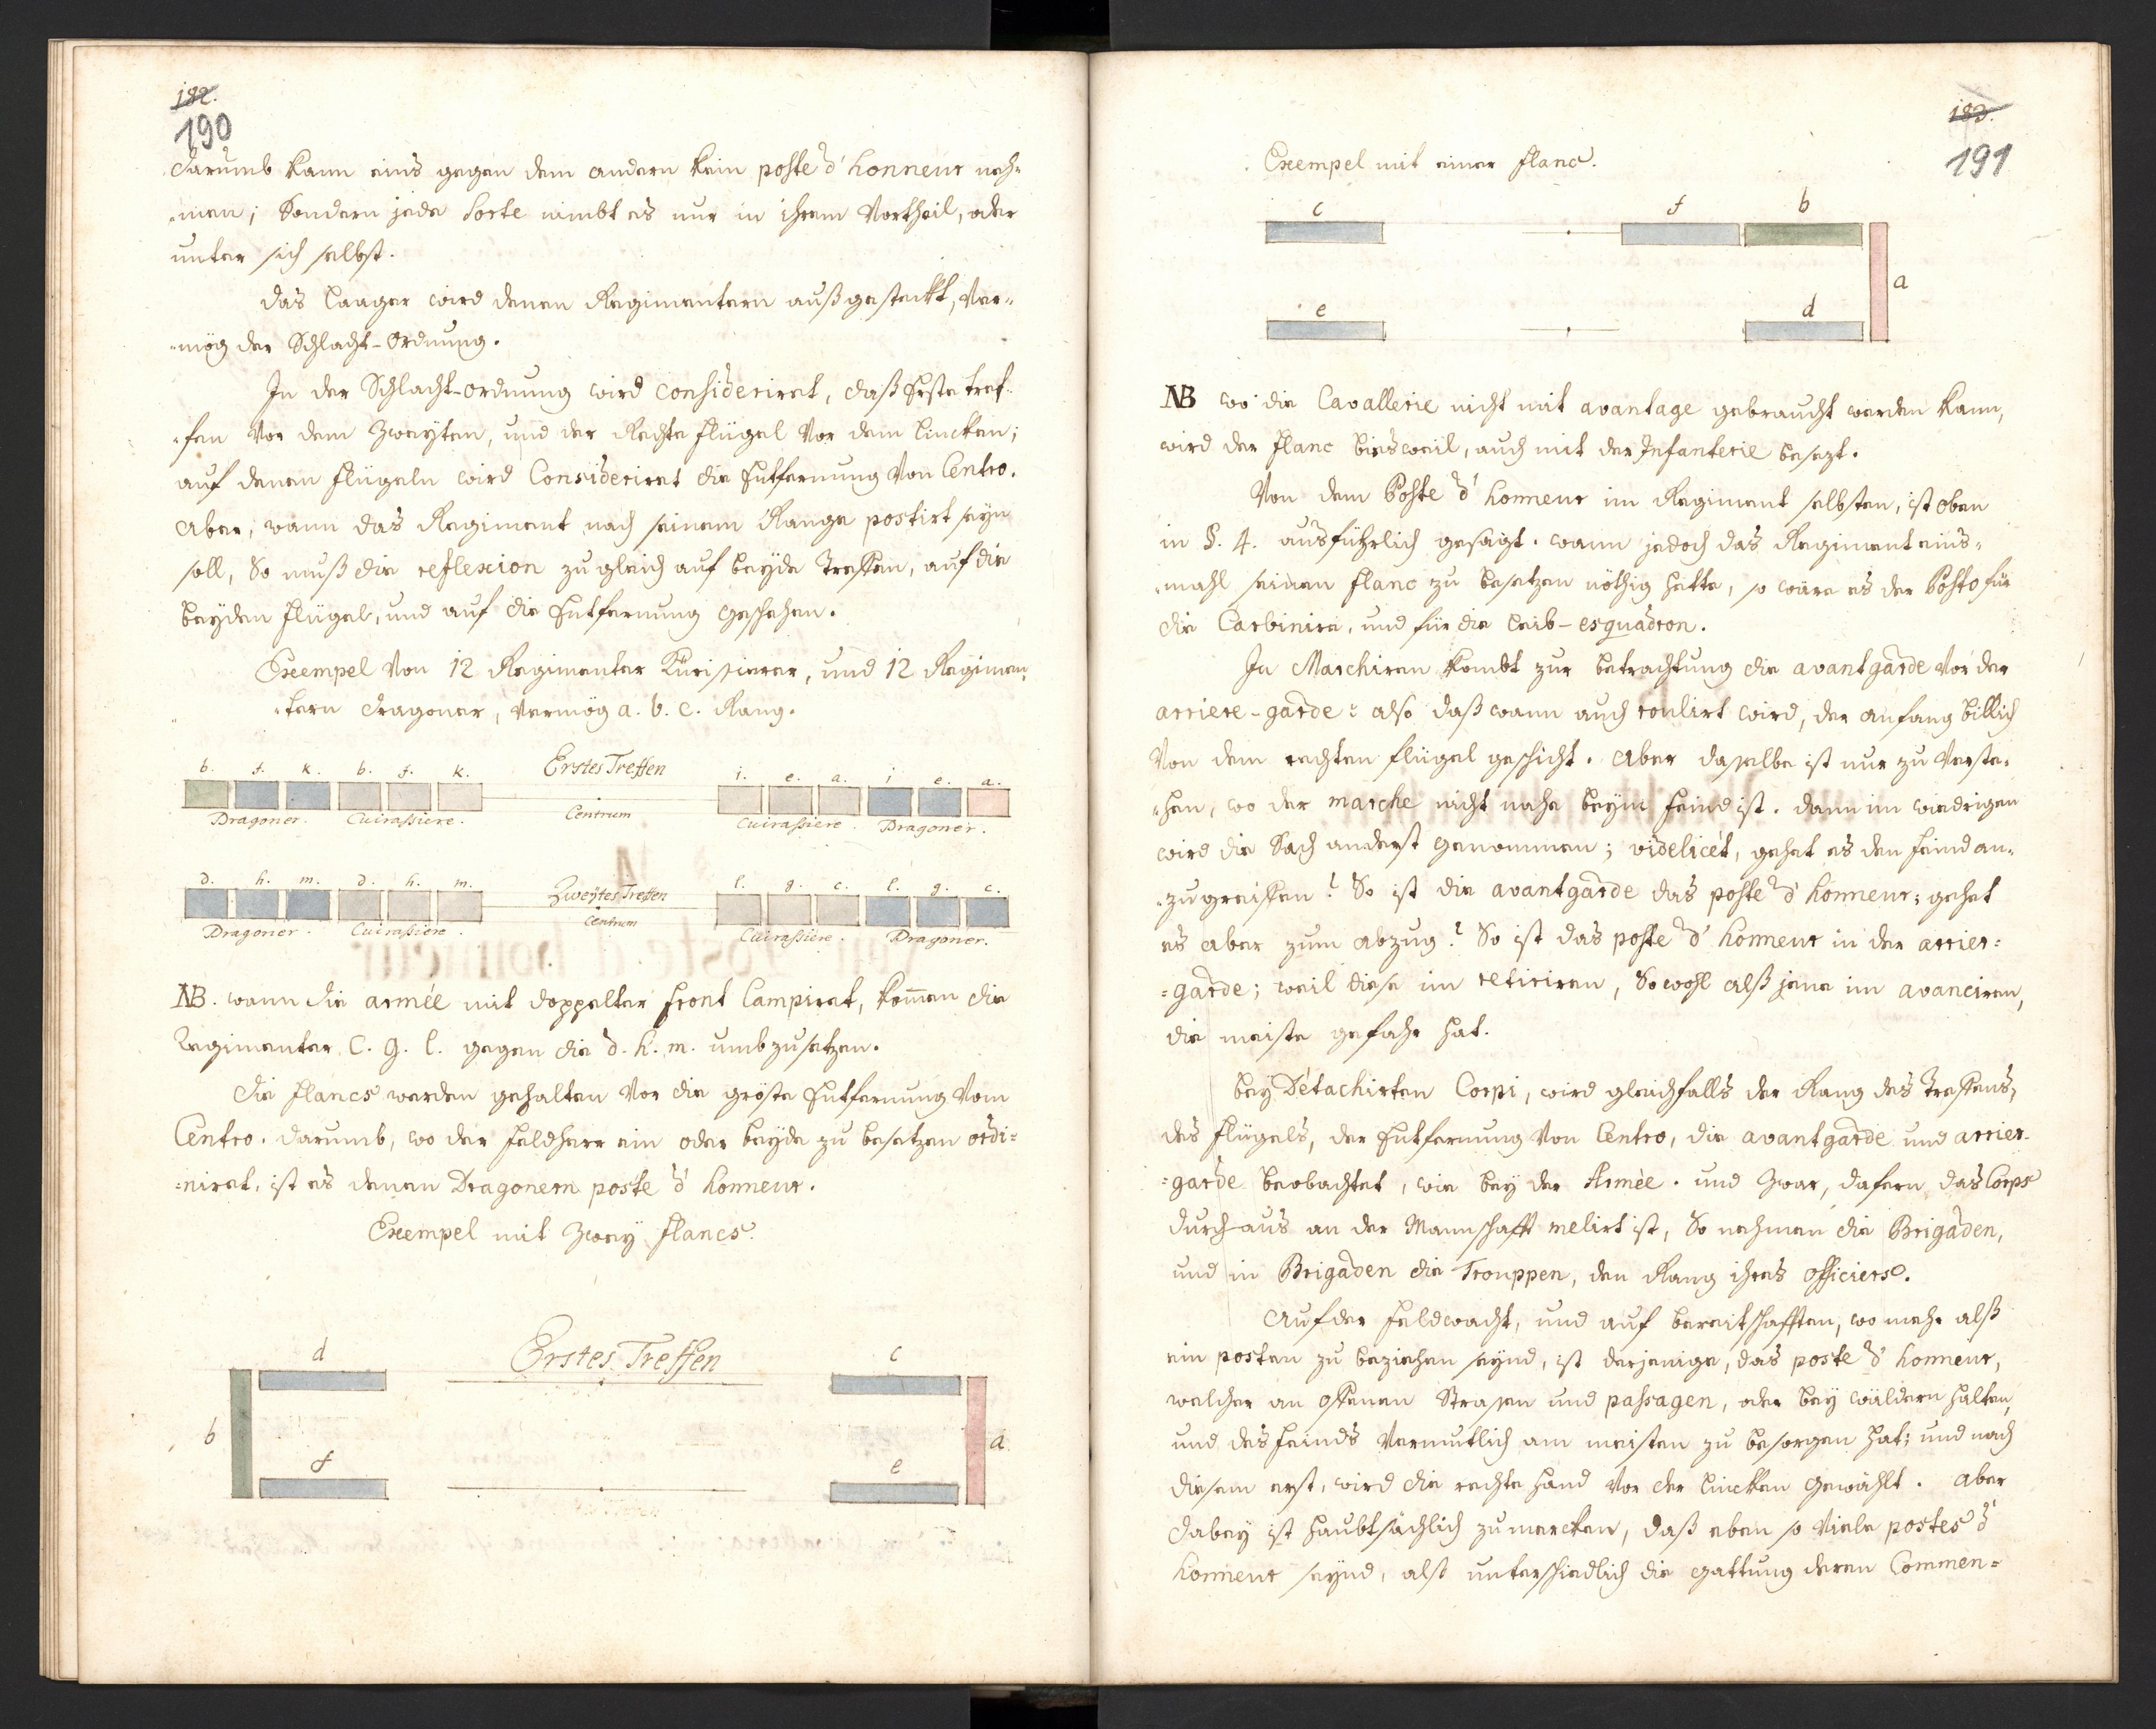 182.
190
darumb kann eins gegen dem andern kein poste d'honneur neh-
-men; Sondern jede Sorte nimbt es nur in ihrem Vortheil, oder
unter sich selbst.
das Laager wird denen Regimentern außgesteckt, Ver-
-mög der Schlacht-Ordnung.
In der Schlacht-ordnung wird consideriret, daß Erste tref-
-fen Vor dem Zweyten, und der Rechte Flügel Vor dem Lincken;
auf denen Flügeln wird Consideriret die Entfernung Von Centro.
Aber, wann das Regiment nach seinem Range postirt seyn
soll, So muß die reflexion zugleich auf beyde Treffen, auf die
beyden Flügel, und auf die Entfernung geschehen.
Exempel Von 12 Regimenter Küristierer, und 12 Regimen-
-tern Dragoner, Vermög a. b. c. Rang.
b. f. k. b. f. k. Erstes Treffen i. e. a. i e. a.
Dragoner. Cuirassiere. Centrum Cuirassiere. Dragoner.
d. h. m. d. h. m. Zweytes Treffen l. g. c. l. g. c.
Dragoner. Cuirassiere. Centrum Cuirassiere. Dragoner.
NB. wann die armée mit doppelter Front Campiret, kom̄en die
Regimenter C. g. l. gegen die d. h. m. umbzusetzen.
die Flancs werden gehalten Vor die gröste Entfernung Vom
Centro. darumb, wo der Feldherr ein oder beyde zu besetzen ordi-
-niret, ist es denen Dragonern poste d'honneur.
Exempel mit Zwey Flancs.
d Erstes Treffen c
b a
f e
183.
191
Exempel mit einer Flanc.
c f b
a
e d
NB wo die Cavallerie nicht mit avantage gebraucht werden kann,
wird der Flanc bisweil, auch mit der Infanterie besezt.
Von dem Poste d'honneur im Regiment selbsten, ist oben
in §. 4. ausführlich gesagt. wann jedoch das Regiment eins-
-mahl seinen Flanc zu besetzen nöthig hette, so wäre es der Posto für
die Carbinire, und für die Leib-esquadron.
In Marchiren kombt zur betrachtung die avantgarde Vor der
arriere-garde: also daß wann auch roulirt wird, der anfang billich
Von dem rechten Flügel geschicht. Aber daselbe ist nur zu Verste-
-hen, wo der marche nicht nahe beym Feind ist. dann im wiedrigen
wird die Sach anderst genommen; videlicet, gehet es den Feind an-
-zugreiffen? So ist die avantgarde das poste d'honneur; gehet
es aber zum abzug? So ist das poste d'honneur in der arrier-
-garde; weil diese im retiriren, So wohl alß jene im avanciren,
die meiste gefahr hat.
bey Détachirten Corpi, wird gleichfalls der Rang des Treffens,
des Flügels, der Entfernung Von Centro, die avantgarde und arrier-
-garde beobachtet, wie bey der Armée. und Zwar, dafern das Corps
durch-aus an der Mannschafft melirt ist, So nehmen die Brigaden,
und in Brigaden die Trouppen, den Rang ihres officiers.
Auf der Feldwacht, und auf bereitschafften, wo mehr alß
ein posten zu beziehen seynd, ist derjenige, das poste d'honneur,
welcher an offenen Strasen und passagen, oder bey wäldern halten,
und des Feinds Vermutlich am meisten zu besorgen hat; und nach
diesem erst, wird die rechte Hand Vor der Lincken gewählt. Aber
dabey ist haubtsächlich zu mercken, daß eben so Viele postes d'
honneur seynd, alß unterschiedlich die gattung deren Commen-